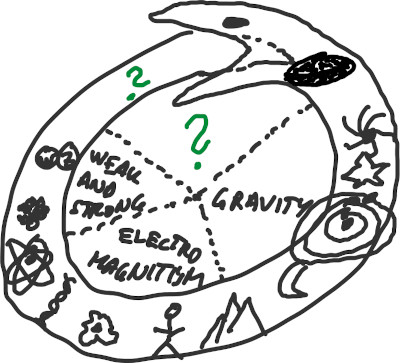 ?
?
WEAK
AND
STRONG
GRAVITY
ELECTRO
MAGNITISM